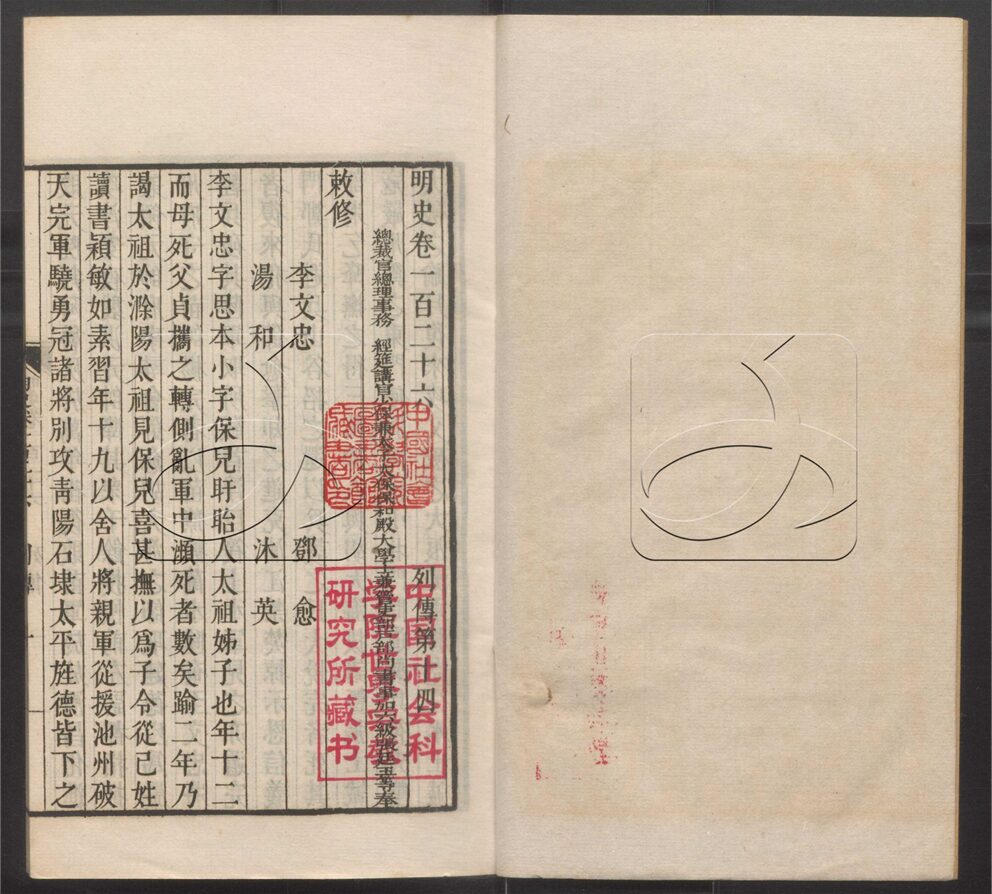 明史卷一百二十六 列傳第十四
總裁官總理事務 經筵講官少保兼太子太保保和殿大學士兼管吏部戶部尚書事加六級張廷玉等奉
敕修
李文忠 鄧愈
湯和 沐英
李文忠字思本小字保兒盱眙人太祖姊子也年十二
而母死父貞攜之轉側亂軍中瀕死者數矣踰二年乃
謁太祖於滁陽太祖見保兒喜甚撫以爲子令從己姓
讀書穎敏如素習年十九以舍人將親軍從援池州破
天完軍驍勇冠諸將別攻靑陽石埭太平旌德皆下之
中國社會
科學院
圖書館
藏書印
中国社会科
学院世界宗教
研究所藏书